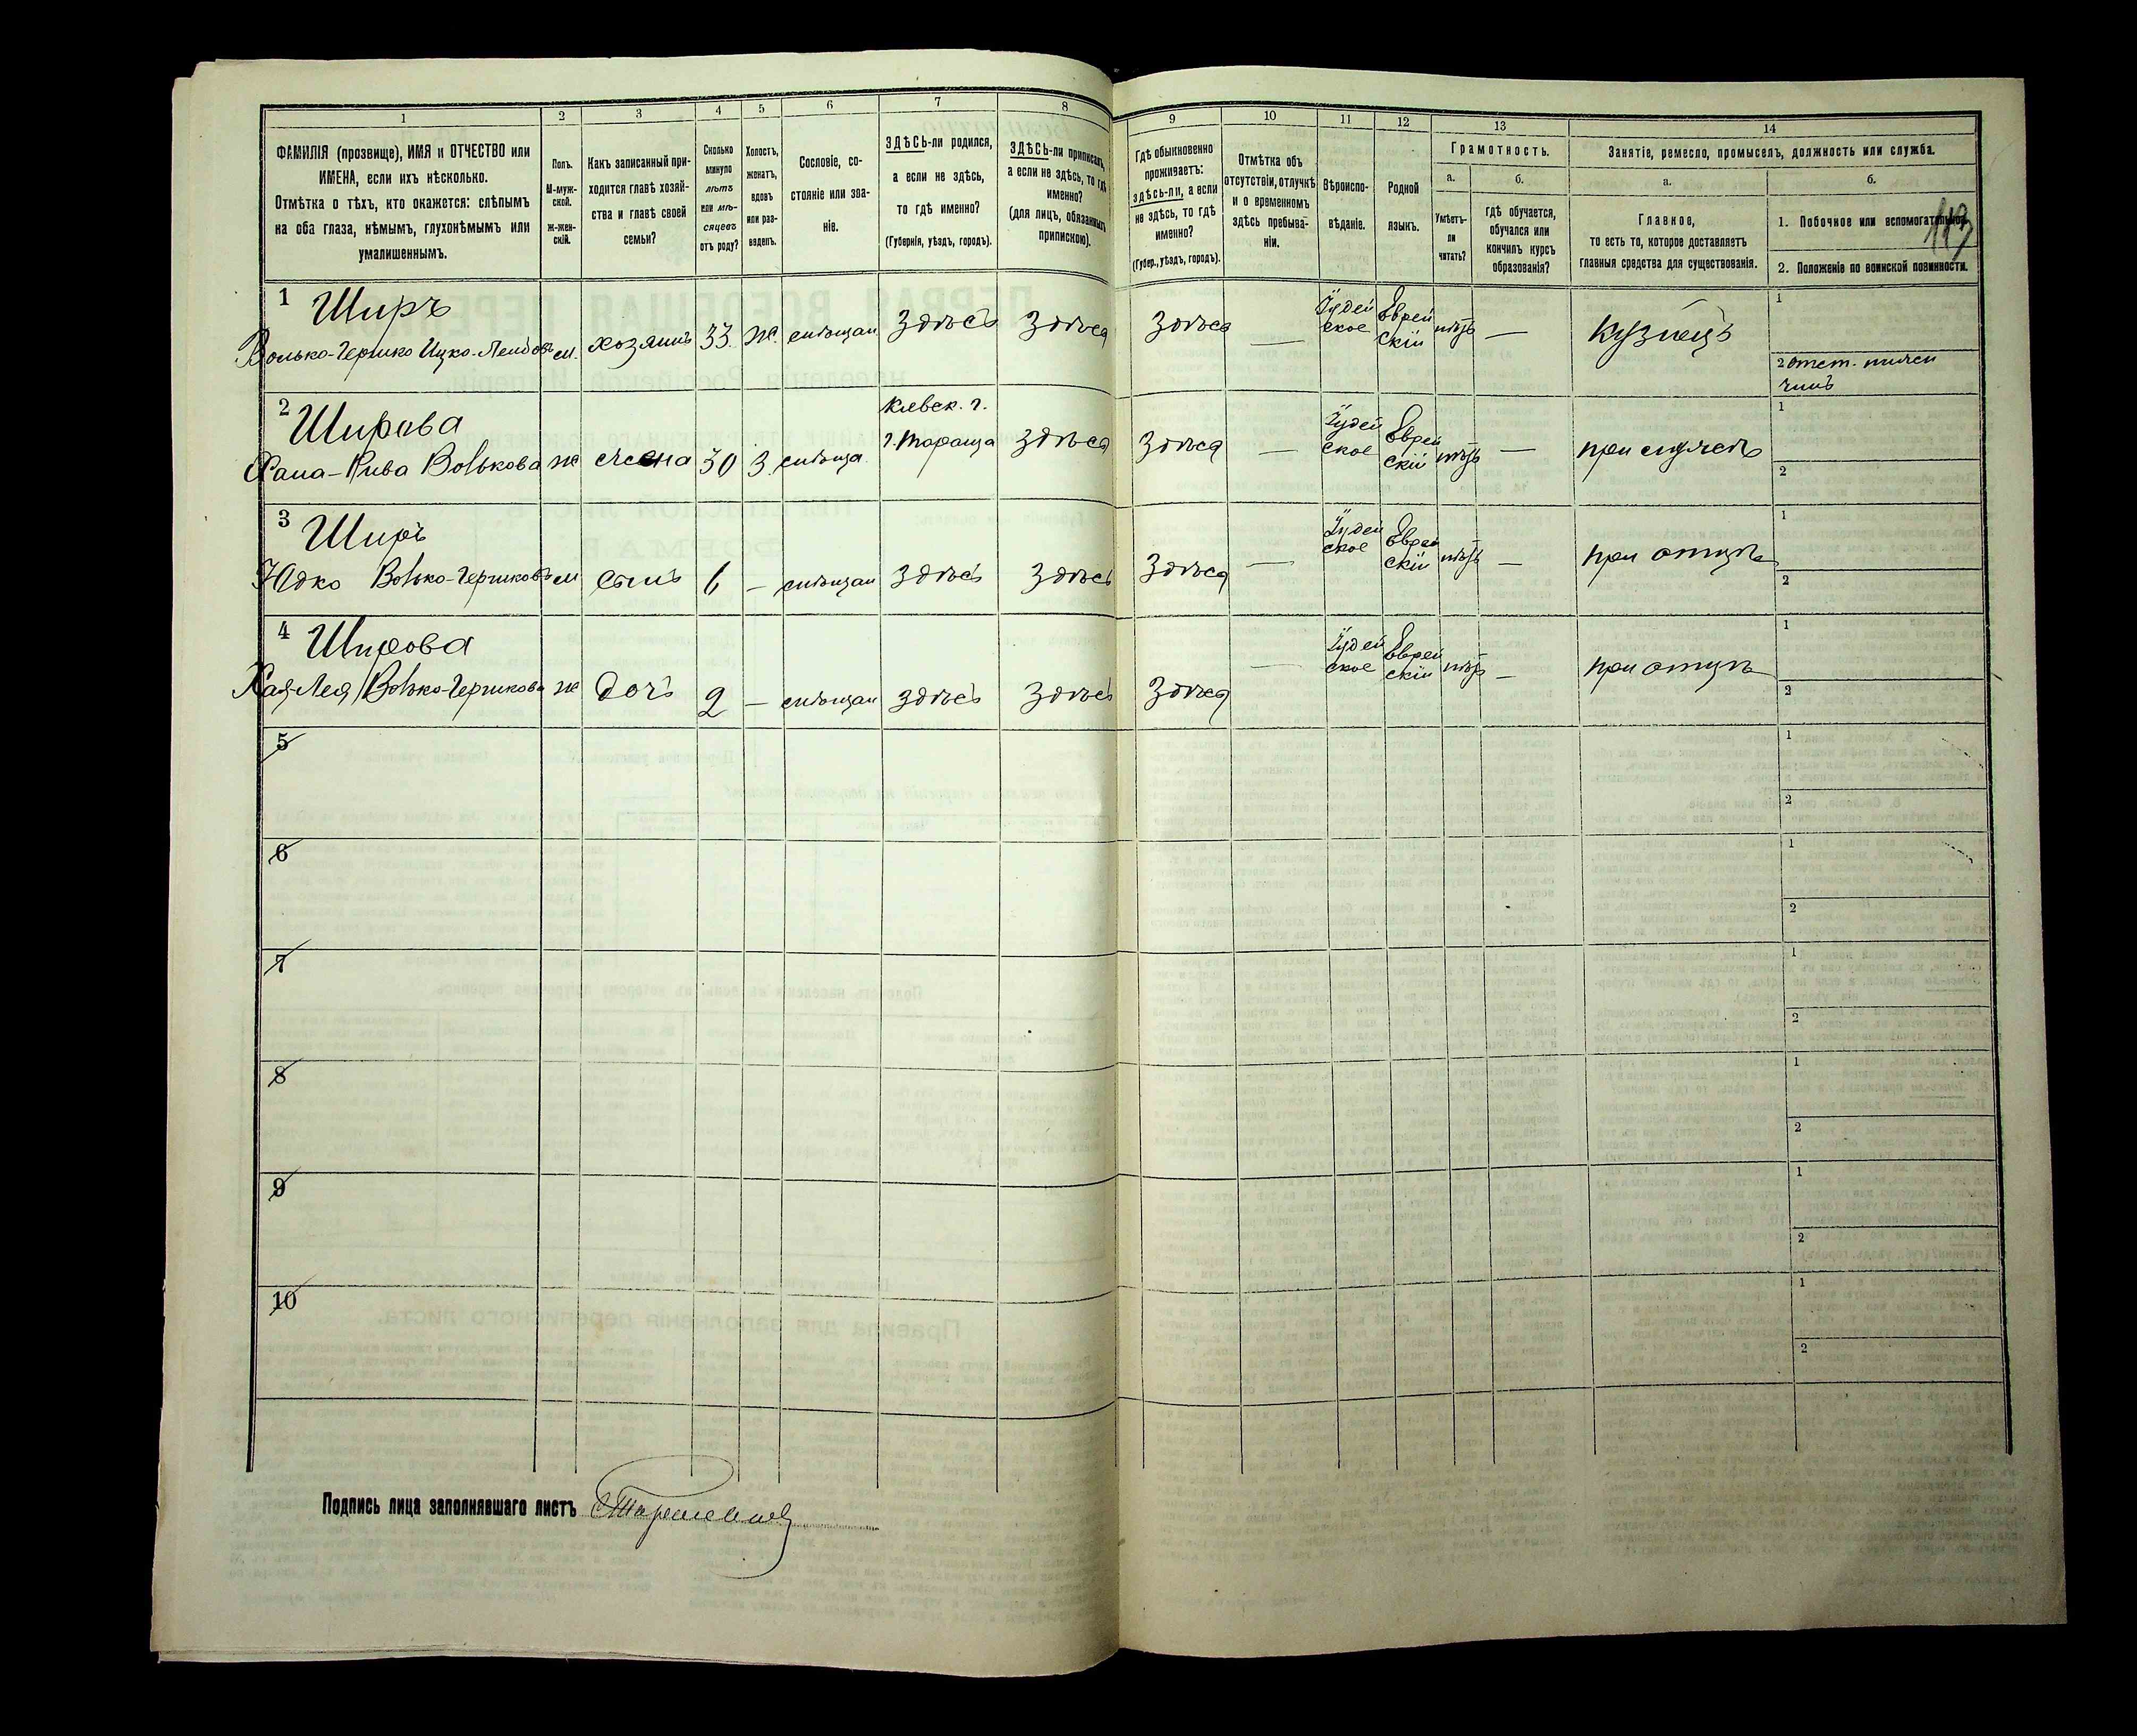 1
2
3
4
5
6
7
8
9
10
11
12
13
14
ФАМИЛІЯ (прозвище), ИМЯ и ОТЧЕСТВО или
ИМЕНА, если ихъ нѣсколько.
Отмѣтка о тѣхъ, кто окажется: слѣпымъ
на оба глаза, нѣмымъ, глухонѣмымъ или
умалишеннымъ.
Полъ.
М-муж-
ской.
Ж-жен-
скій.
Какъ записанный при-
ходится главѣ хозяй-
ства и главѣ своей
семьи?
Сколько
минуло
лѣтъ
или мѣ-
сяцевъ
отъ роду?
Холостъ,
женатъ,
вдовъ
или раз-
веденъ.
Сословіе, со-
стояніе или зва-
ніе.
ЗДѢСЬ-ли родился,
а если не здѣсь,
то гдѣ именно?
(Губернія, уѣздъ, городъ).
ЗДѢСЬ-ли приписанъ,
а если не здѣсь, то гдѣ
именно?
(для лицъ, обязанныхъ
припискою).
Гдѣ обыкновенно
проживаетъ:
здѣсь-ли, а если
не здѣсь, то гдѣ
именно?
(Губер., уѣздъ, городъ).
Отмѣтка объ
отсутствіи, отлучкѣ
и о временномъ
здѣсь пребыва-
ніи.
Вѣроиспо-
вѣданіе.
Родной
языкъ.
Грамотность.
а.
Умѣетъ-
ли
читать?
б.
гдѣ обучается,
обучался или
кончилъ курсъ
образованія?
Занятіе, ремесло, промыселъ, должность или служба.
а.
Главное,
то есть то, которое доставляетъ
главныя средства для существованія.
б.
1. Побочное или вспомогательное.
2. Положеніе по воинской повинности.
1 Ширъ
Волько-Гершко Ицко-Лейбовъ м. хозяинъ 33. ж. мѣщан здѣсь здѣся здѣся — Іудей
ское Еврей
скій нѣтъ — кузнецъ 1
2
2 Широва
Хана-Рива Волькова ж жена 30 З. мѣща. Кіевск. г.
г. Тараща здѣся здѣся — Іудей
ское Еврей
скій нѣтъ — при мужѣ 1
2
3 Ширъ
Юдко Волько-Гершковъ м сынъ 6 — мѣщан здѣсь здѣсь здѣся — Іудей
ское Еврей
скій нѣтъ — при отцѣ 1
2
4 Широва
Хая-Лея Волько-Гершкова ж дочь 2 — мѣщан здѣсь здѣсь здѣся — Іудей
ское Еврей
скій нѣтъ — при отцѣ 1
2
5 1
2
6 1
2
7 1
2
8 1
2
9 1
2
10 1
2
Подпись лица заполнявшаго листъ